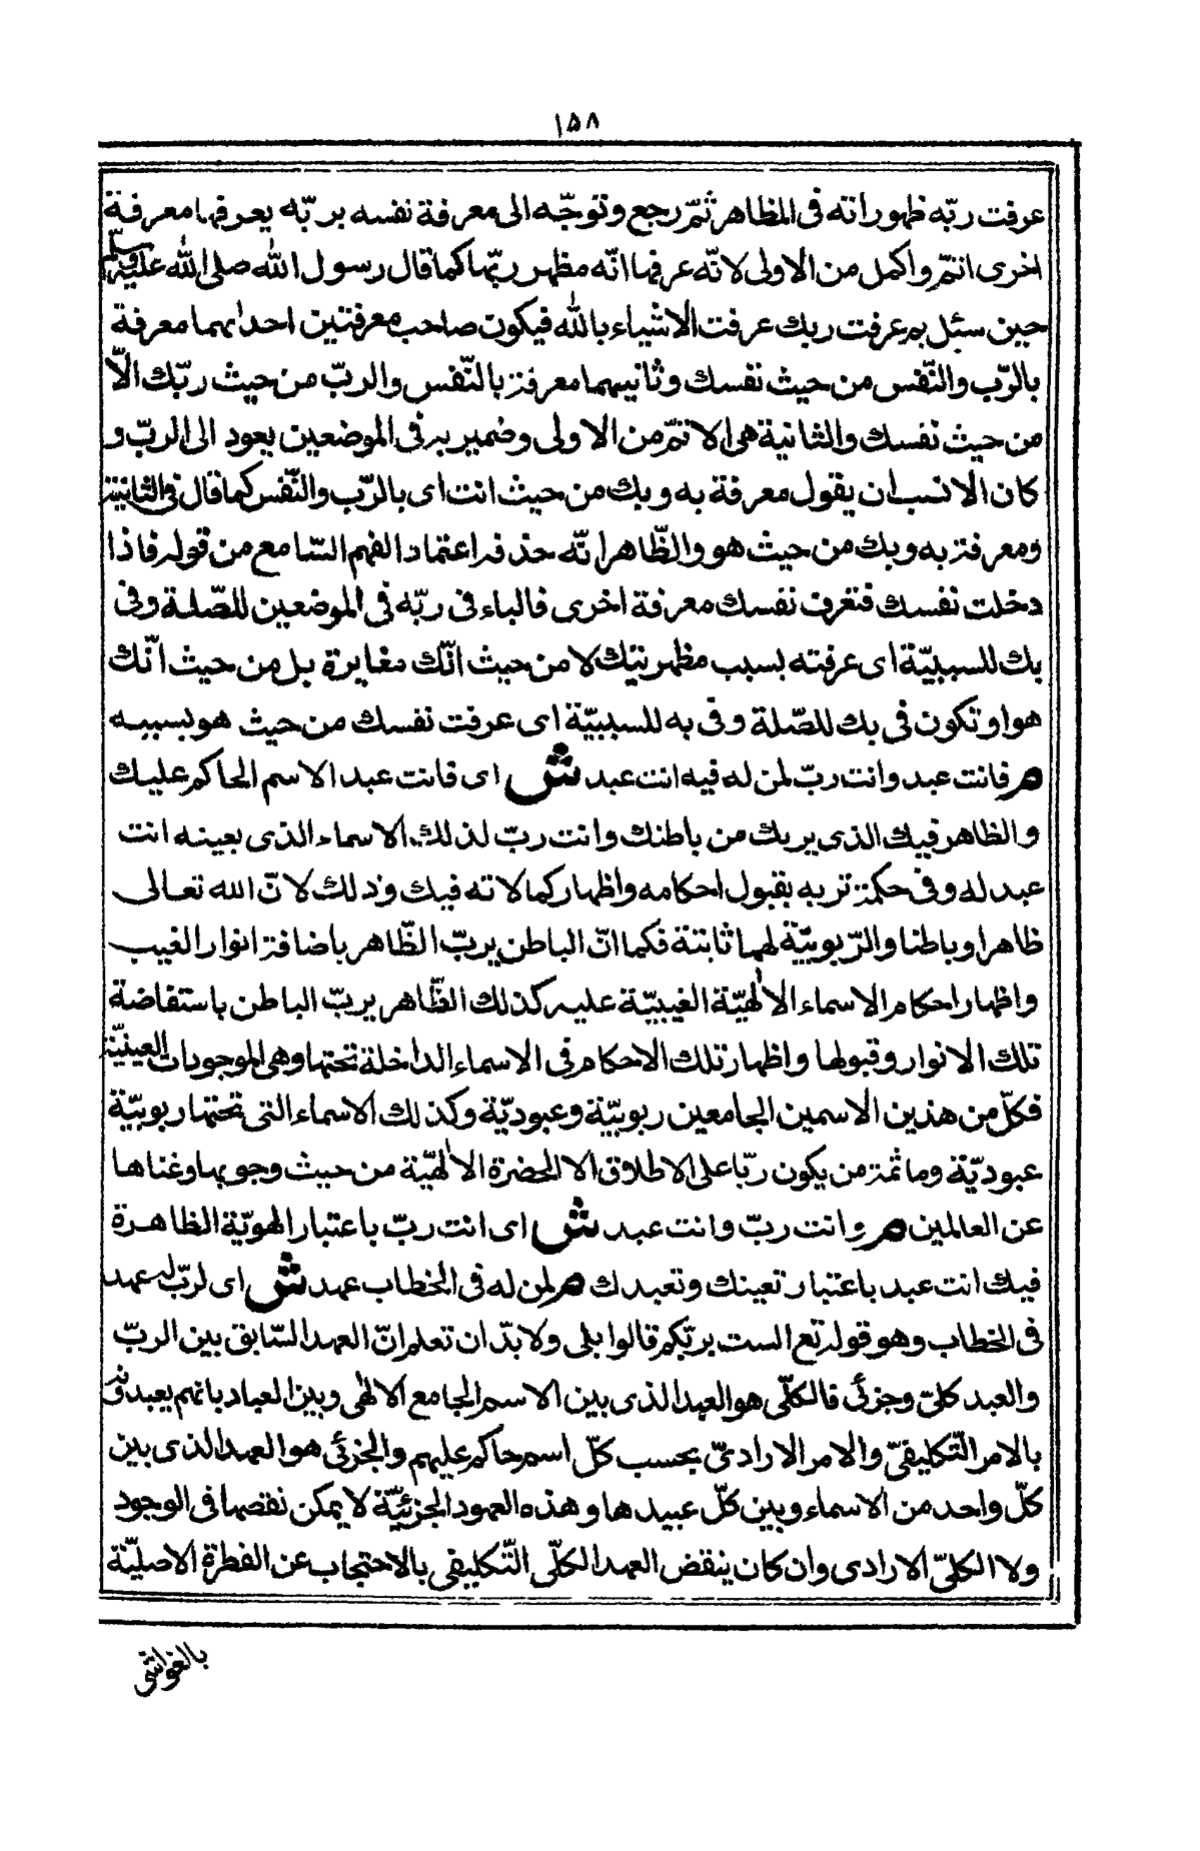 ١٥٨
عرفت ربّه ظهوراته فى المظاهر ثمّ رجع وتوجّه الى معرفة نفسه بربّه يعرفها معرفة
اخرى اتمّ واكمل من الاولى لانّه عرفها انّه مظهر ربّها كما قال رسول الله صلى الله عليه وسلّم
حين سئل بم عرفت ربك عرفت الاشياء بالله فيكون صاحب معرفتين احداهما معرفة
بالرّب والنّفس من حيث نفسك وثانيهما معرفة بالنّفس والربّ من حيث ربّك الاّ
من حيث نفسك والثانية هى الاتمّ من الاولى وضمير به فى الموضعين يعود الى الربّ و
كان الانسب ان يقول معرفة به وبك من حيث انت اى بالرّب والنّفس كما قال فى الثانية
ومعرفة به وبك من حيث هو والظّاهر انّه حذفه اعتمادا لفهم السّامع من قوله فاذا
دخلت نفسك فتعرف نفسك معرفة اخرى فالباء فى ربّه فى الموضعين للصّلة وفى
بك للسببيّة اى عرفته بسبب مظهريّتك لا من حيث انّك مغايرة بل من حيث انّك
هو او تكون فى بك للصّلة وفى به للسببيّة اى عرفت نفسك من حيث هو بسببه
م فانت عبد وانت ربّ لمن له فيه انت عبد ش اى فانت عبد الاسم الحاكم عليك
والظاهر فيك الذى يربك من باطنك وانت ربّ لذلك الاسماء الذى بعينه انت
عبد له وفى حكمة تربه بقبول احكامه واظهار كمالاته فيك وذلك لانّ الله تعالى
ظاهرا وباطنا والرّبوبيّة لهما ثابتة فكما انّ الباطن يربّ الظّاهر باضافة انوار الغيب
واظهار احكام الاسماء الالٰهيّة الغيبيّة عليه كذلك الظّاهر يربّ الباطن باستفاضة
تلك الانوار وقبولها واظهار تلك الاحكام فى الاسماء الداخلة تحتها وهى الموجودات العينيّة
فكلّ من هذين الاسمين الجامعين ربوبيّة وعبوديّة وكذلك الاسماء التى تحتها ربوبيّة
عبوديّة وما ثمة من يكون ربّا على الاطلاق الا الحضرة الالٰهيّة من حيث وجوبها وغناها
عن العالمين م وانت ربّ وانت عبد ش اى انت ربّ باعتبار الهويّة الظاهرة
فيك انت عبد باعتبار تعينك وتعبدك م لمن له فى الخطاب عهد ش اى لربّ له عهد
فى الخطاب وهو قوله تع الست بربّكم قالوا بلى ولا بدّ ان تعلم انّ العهد السّابق بين الربّ
والعبد كلىّ وجزئى فالكلّى هو العهد الذى بين الاسم الجامع الالٰهى وبين العباد بانهم يعبدونه
بالامر التّكليفىّ والامر الارادىّ بحسب كلّ اسم حاكم عليهم والجزئى هو العهد الذى بين
كلّ واحد من الاسماء وبين كلّ عبيدها وهذه العهود الجزئيّة لا يمكن نقضها فى الوجود
ولا الكلىّ الارادى وان كان ينقض العهد الكلّى التّكليفى بالاحتجاب عن الفطرة الاصليّة
بالغواشى